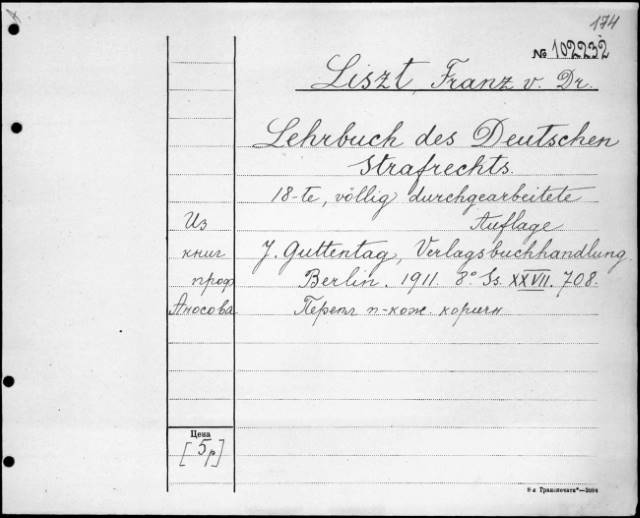 174
№ 102232
Liszt, Franz v. Dr.
Lehrbuch des Deutschen
Strafrechts.
18-te, völlig durchgearbeitete
Auflage.
J. Guttentag, Verlagsbuchhandlung.
Berlin. 1911. 8° Ss. XXVII. 708.
Перепл п-кож. коричн
Из
книг
проф
Аносова.
Цена
[5р]